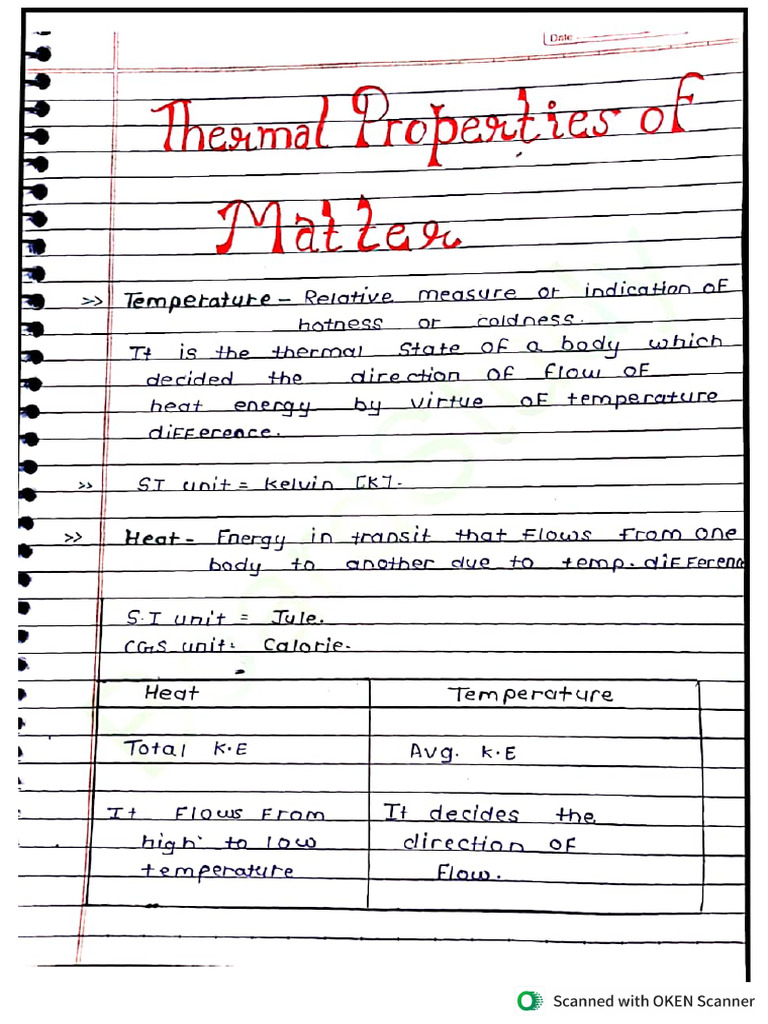 Date
Thermal Properties of
Matter
>> Temperature - Relative measure or indication of
hotness or coldness.
It is the thermal state of a body which
decided the direction of flow of
heat energy by virtue of temperature
difference.
>> SI unit = Kelvin [K].
>> Heat - Energy in transit that flows from one
body to another due to temp. differenc
S.I unit = Jule.
CGS unit: Calorie.
Heat Temperature
Total K.E Avg. K.E
It flows from It decides the
high to low direction of
temperature flow.
Scanned with OKEN Scanner